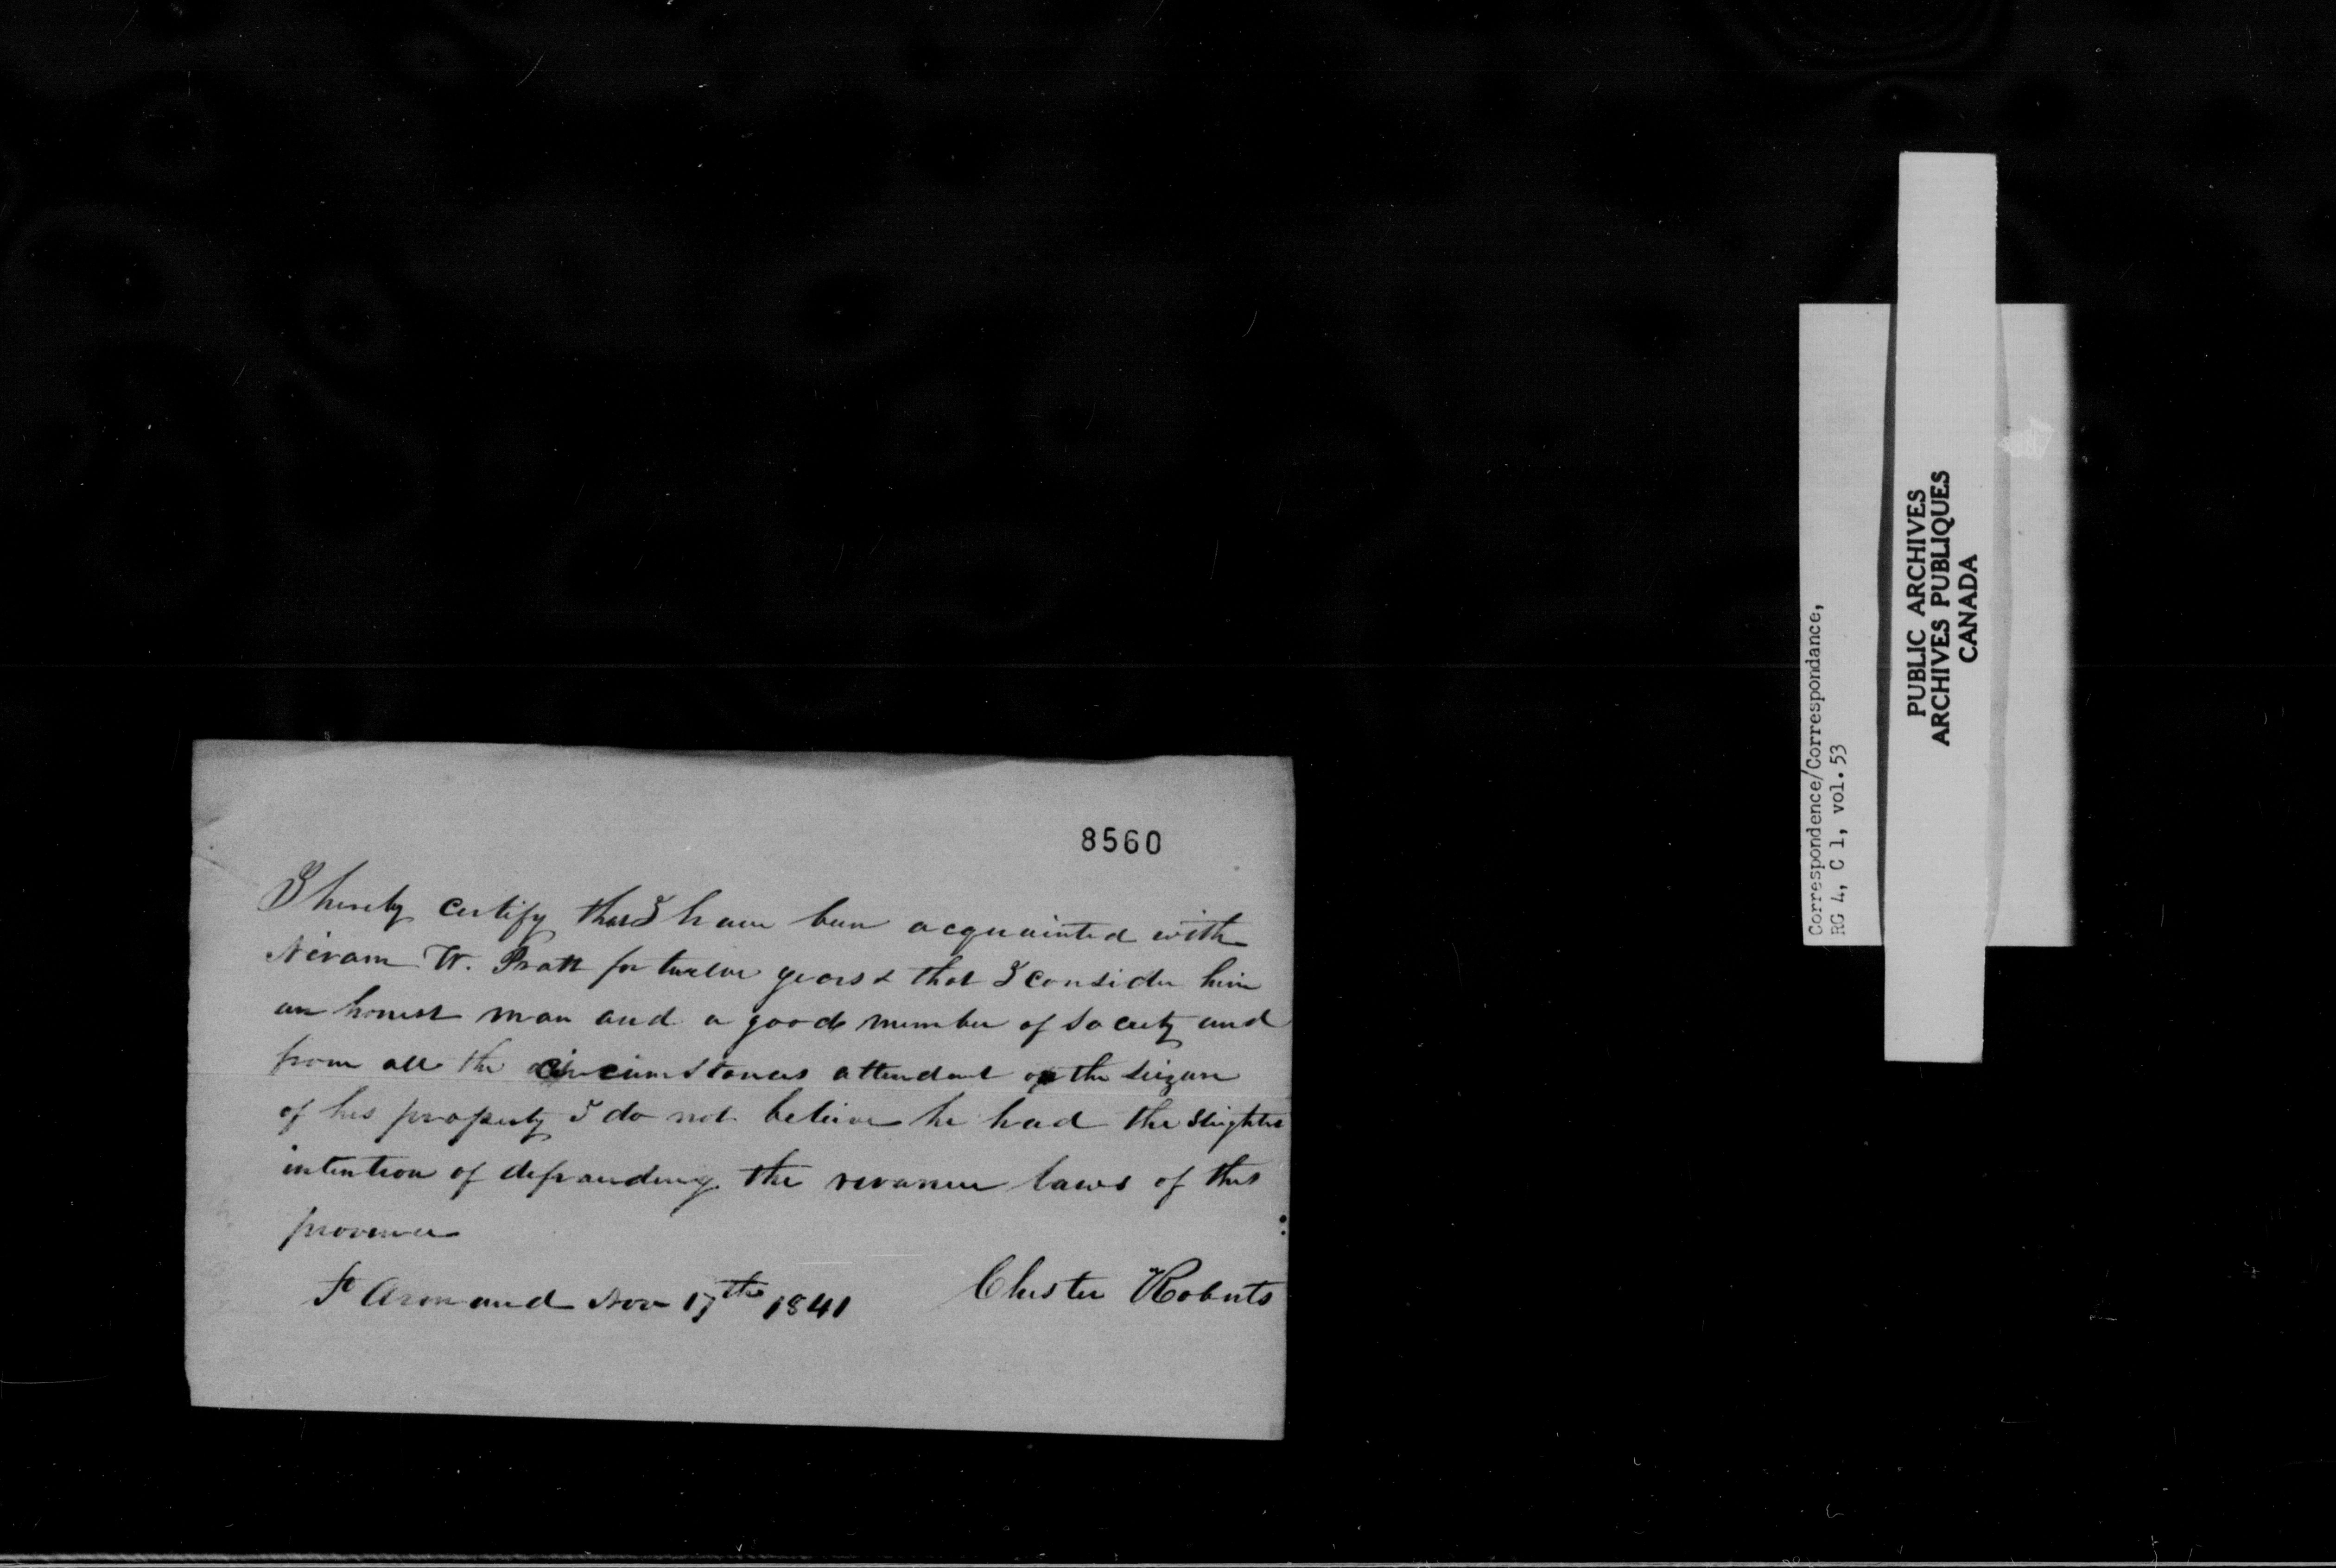 8560
I hereby certify that I have been acquainted with
Niram W. Pratt for twelve years & that I consider him
an honest man and a good member of society and
from all the circumstances attendant on the seizure
of his property I do not believe he had the slightes
intention of defrauding the revanue laws of this
province
St Armand Nov 17th 1841 Chester Roberts
Correspondence/Correspondance,
RG 4, C 1, vol. 53
PUBLIC ARCHIVES
ARCHIVES PUBLIQUES
CANADA